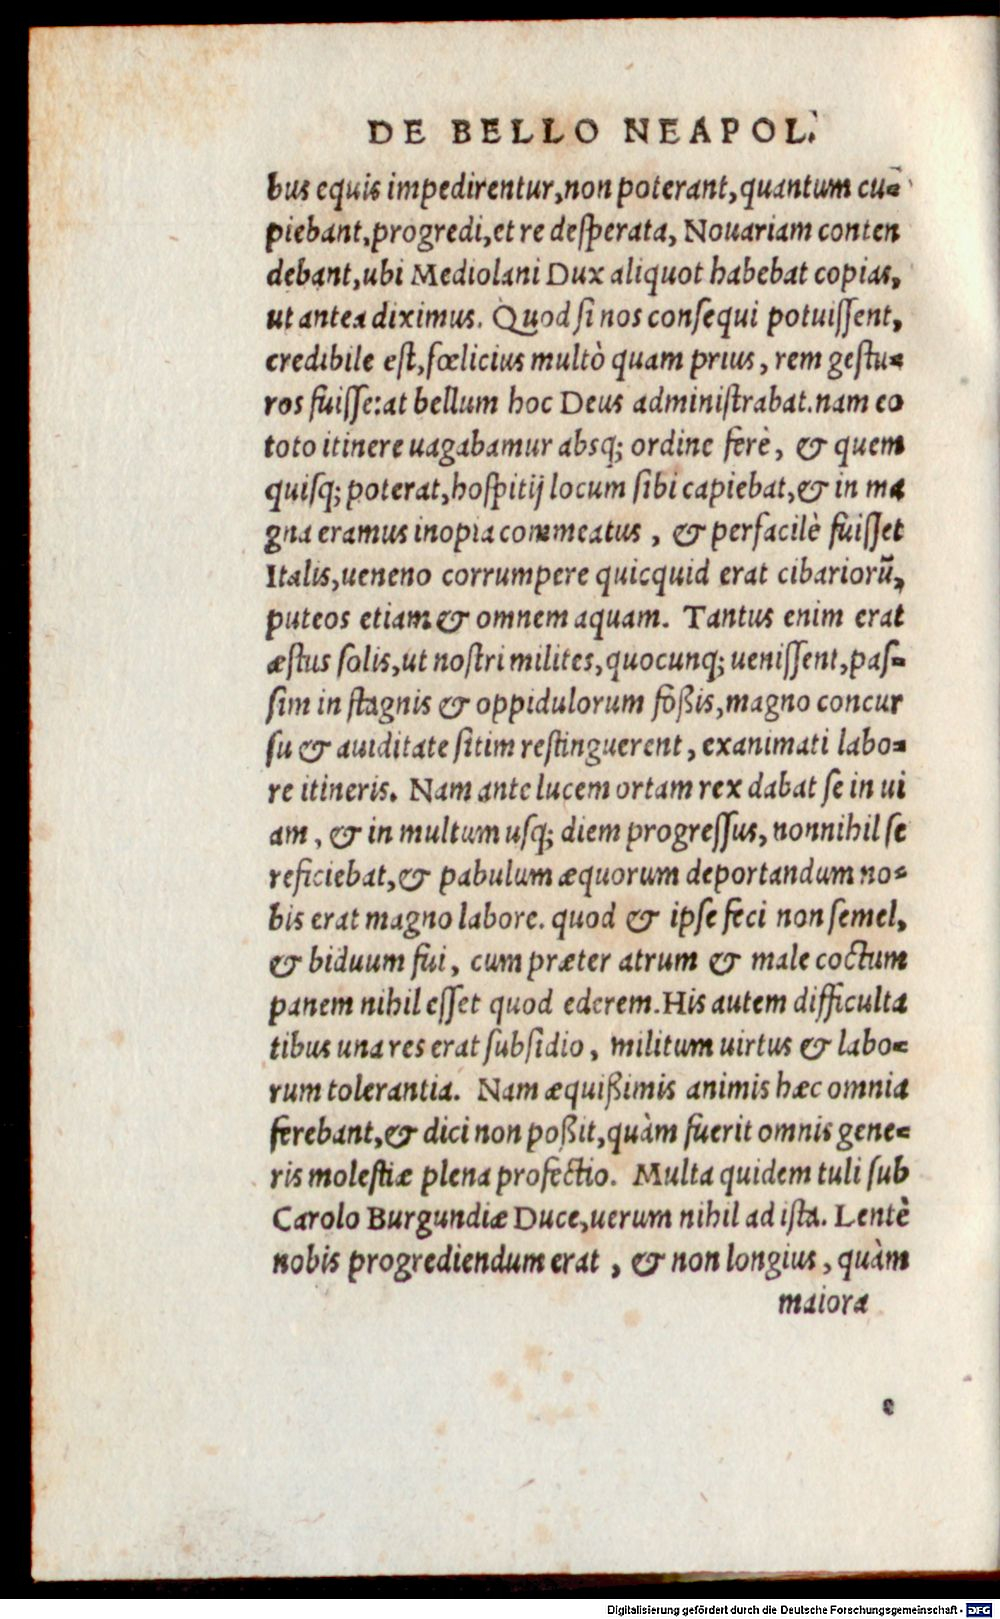 DE BELLO NEAPOL.
bus equis impedirentur, non poterant, quantum cu-
piebant, progredi, et re desperata, Nouariam conten
debant, ubi Mediolani Dux aliquot habebat copias,
ut antea diximus. Quod si nos consequi potuissent,
credibile est, fœlicius multò quam prius, rem gestu-
ros fuisse: at bellum hoc Deus administrabat. nam eo
toto itinere uagabamur absq; ordine ferè, & quem
quisq; poterat, hospitij locum sibi capiebat, & in ma
gna eramus inopia commeatus, & perfacilè fuisset
Italis, ueneno corrumpere quicquid erat cibariorũ,
puteos etiam & omnem aquam. Tantus enim erat
æstus solis, ut nostri milites, quocunq; uenissent, pas-
sim in stagnis & oppidulorum foßis, magno concur
su & auiditate sitim restinguerent, exanimati labo-
re itineris. Nam ante lucem ortam rex dabat se in ui
am, & in multum usq; diem progressus, nonnihil se
reficiebat, & pabulum æquorum deportandum no-
bis erat magno labore. quod & ipse feci non semel,
& biduum fui, cum præter atrum & male coctum
panem nihil esset quod ederem. His autem difficulta
tibus una res erat subsidio, militum uirtus & labo-
rum tolerantia. Nam æquißimis animis hæc omnia
ferebant, & dici non poßit, quàm fuerit omnis gene-
ris molestiæ plena profectio. Multa quidem tuli sub
Carolo Burgundiæ Duce, uerum nihil ad ista. Lentè
nobis progrediendum erat, & non longius, quàm
maiora
Digitalisierung gefördert durch die Deutsche Forschungsgemeinschaft - DFG